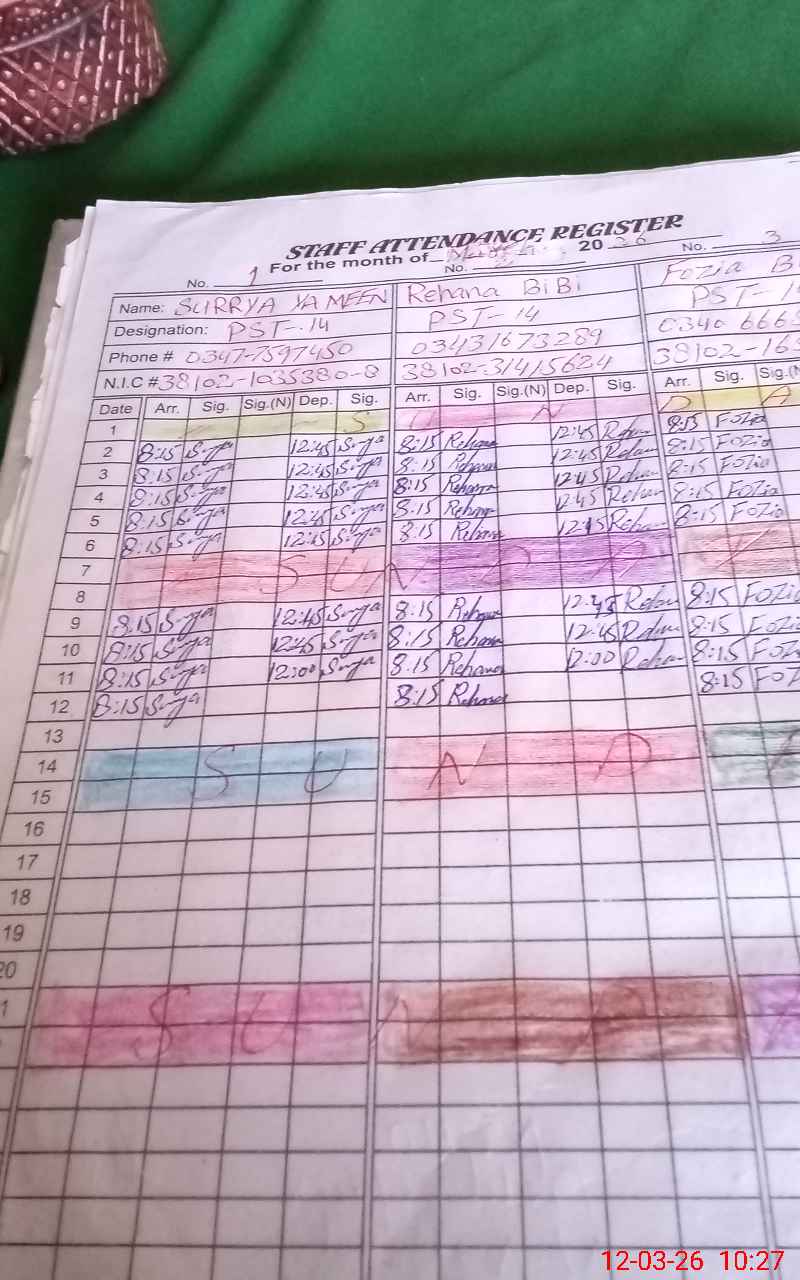 STAFF ATTENDANCE REGISTER
For the month of March 2026
No. 1 No. No. 3
Name: SURRYA YAMEEN Rehana BiBi Fozia B
Designation: PST-14 PST-14 PST-1
Phone # 0347-7597450 03431673289 0340 666
N.I.C #38102-1035380-8 38102-31415624 38102-165
Date Arr. Sig. Sig.(N) Dep. Sig. Arr. Sig. Sig.(N) Dep. Sig. Arr. Sig. Sig.(N
1 S U N D A
2 8:15 Surya 12:45 Surya 8:15 Rehana 12:45 Rehan 8:15 FOZia
3 8:15 Surya 12:45 Surya 8:15 Rehana 12:45 Rehan 8:15 FOZia
4 8:15 Surya 12:45 Surya 8:15 Rehana 12:45 Rehan 8:15 FOZia
5 8:15 Surya 12:45 Surya 8:15 Rehana 12:45 Rehan 8:15 FOZia
6 8:15 Surya 12:45 Surya 8:15 Rehana 12:15 Rehan 8:15 FOZia
7 S U N D A
8
9 8:15 Surya 12:45 Surya 8:15 Rehana 12:45 Rehan 8:15 FOZia
10 8:15 Surya 12:45 Surya 8:15 Rehana 12:45 Rehan 8:15 FOZia
11 8:15 Surya 12:00 Surya 8:15 Rehana 12:00 Rehan 8:15 FOZ
12 8:15 Surya 8:15 Rehana 8:15 FOZ
13
14 S U N D
15
16
17
18
19
20
1 S U N D A
12-03-26 10:27